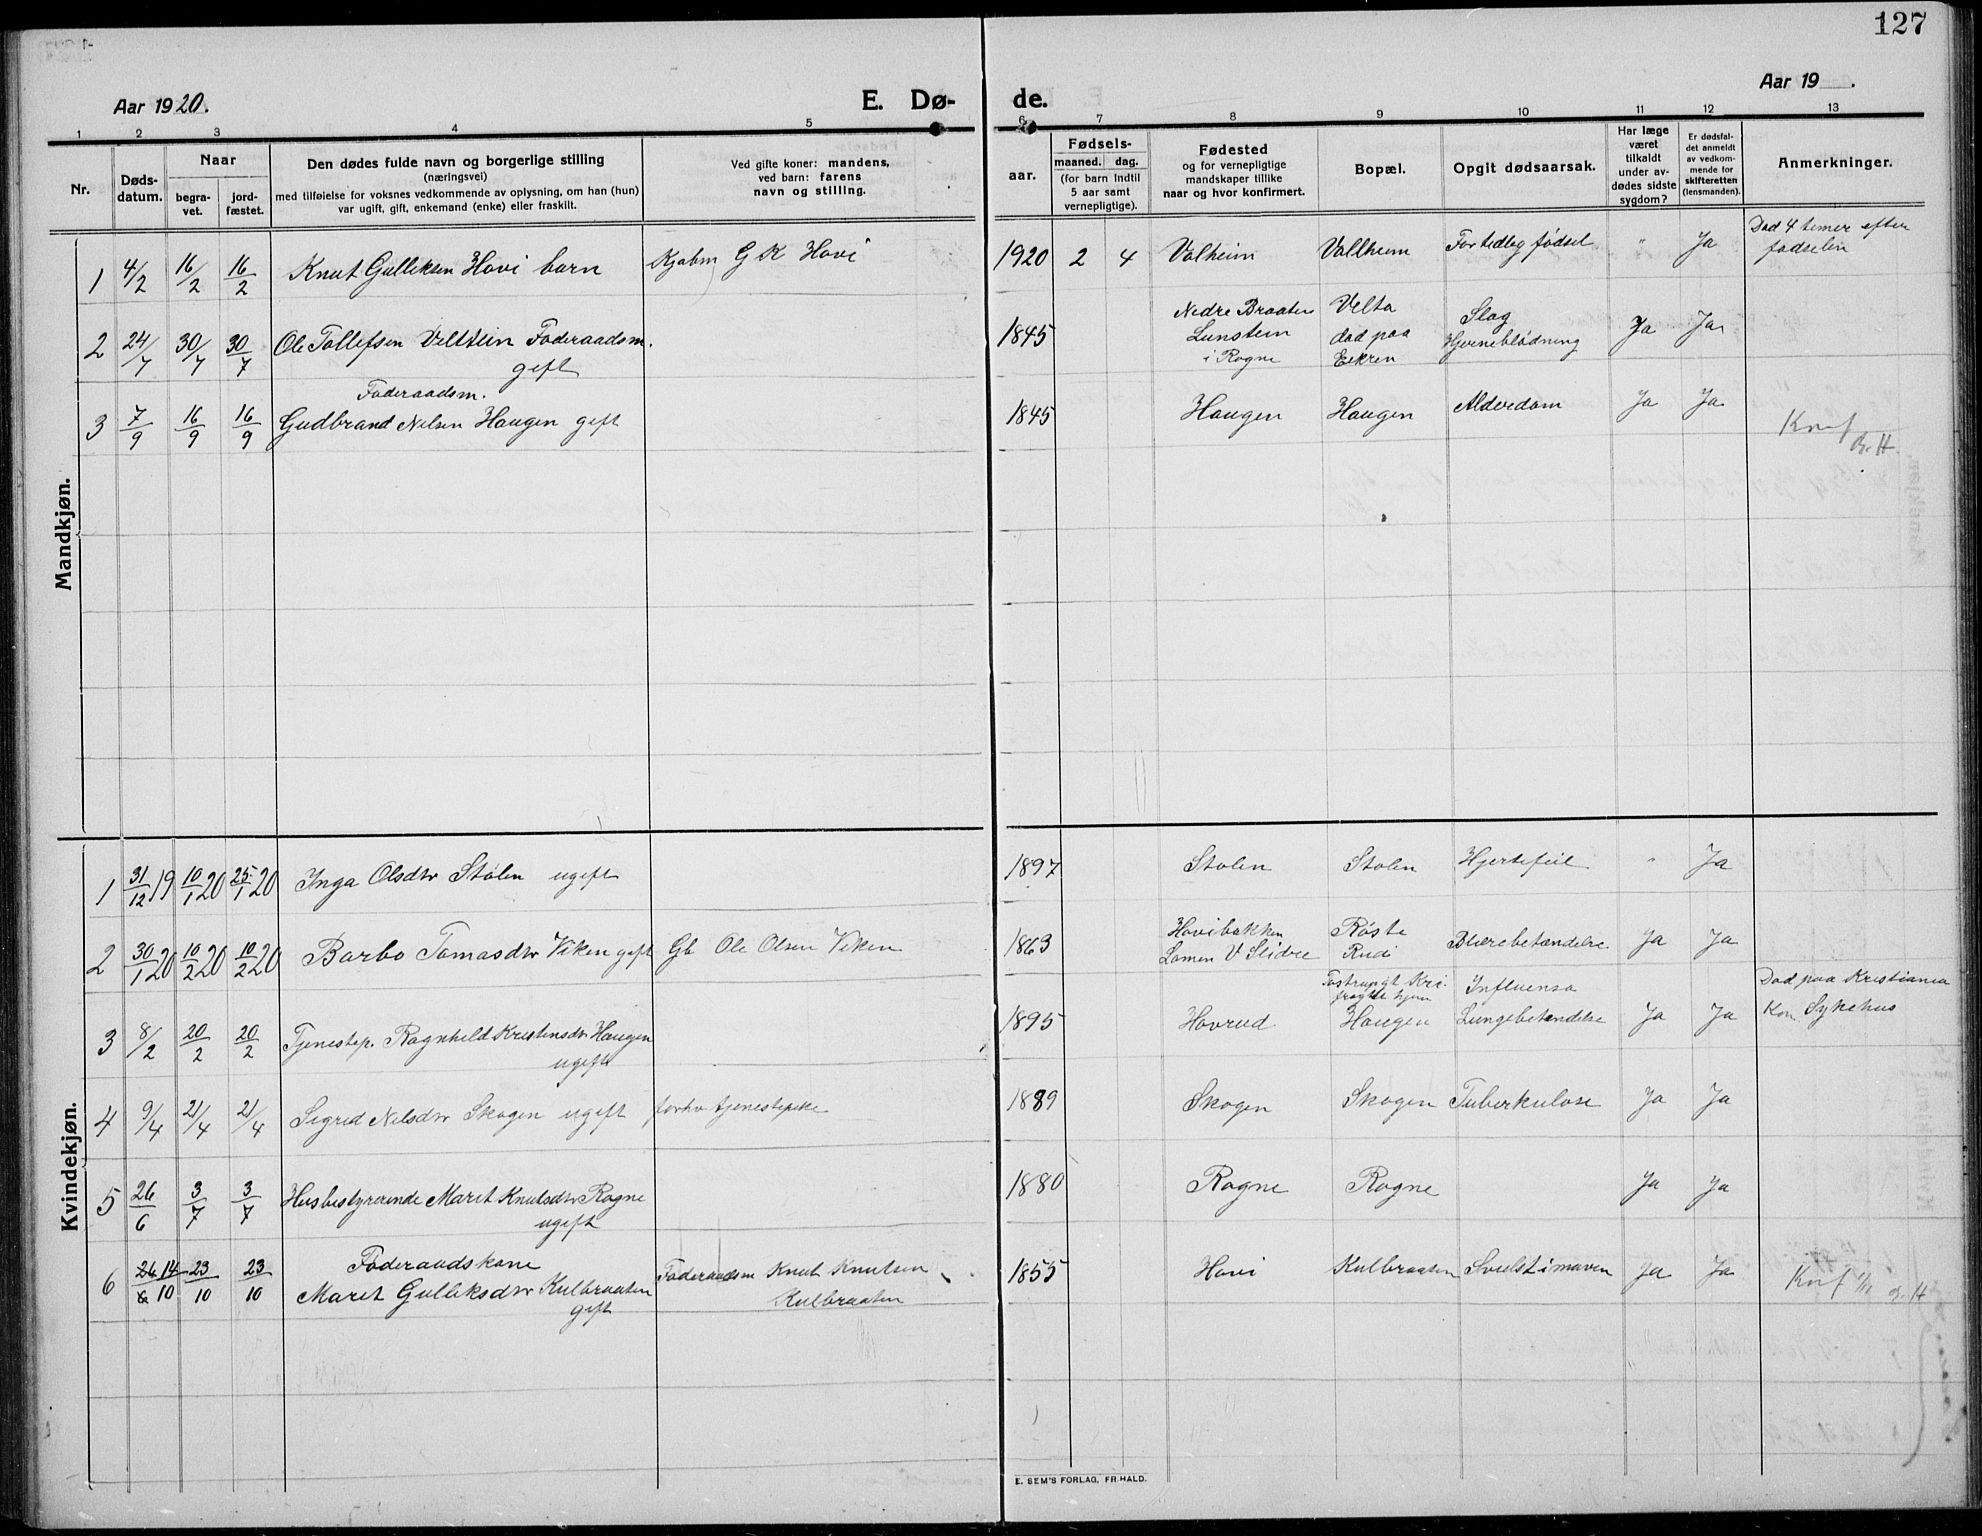 127
Aar 1920.
E. Dø-
de.
Aar 19 .
1 2 3 4 5 6 7 8 9 10 11 12 13
Nr.
Døds-
datum.
Naar
begra-
vet.
jord-
fæstet.
Den dødes fulde navn og borgerlige stilling
(næringsvei)
med tilføielse for voksnes vedkommende av oplysning, om han (hun)
var ugift, gift, enkemand (enke) eller fraskilt.
Ved gifte koner: mandens,
ved barn: farens
navn og stilling.
Fødsels-
aar.
maaned. dag.
(for barn indtil
5 aar samt
vernepligtige).
Fødested
og for vernepligtige
mandskaper tillike
naar og hvor konfirmert.
Bopæl.
Opgit dødsaarsak.
Har læge
været
tilkaldt
under av-
dødes sidste
sygdom?
Er dødsfal-
det anmeldt
av vedkom-
mende for
skifteretten
(lensmanden).
Anmerkninger.
Mandkjøn.
1 4/2 16/2 16/2 Knut Gulliksen Hovi barn Kjøbm G K Hovi 1920 2 4 Valheim Vallheim For tidlig fødsel " Ja Død 4 timer efter
fødselen
2 24/7 30/7 30/7 Ole Tollefsen Velttein Føderaadsm.
gift
1845 Nedre Braaten
Lunstein
i Rogne
Velta
død paa
Eekren
Slag
Hjerneblødning
Ja Ja
Føderaadsm.
3 7/9 16/9 16/9 Gudbrand Nilsen Haugen gift 1845 Haugen Haugen Alderdom Ja Ja Knf
Kvindekjøn.
1 31/12 19 10/1 20 25/1 20 Inga Olsdtr Stølen ugift 1897 Stolen Stolen Hjertefeil " Ja
2 30/1 20 10/2 20 10/2 20 Barbo Tomasdtr Viken gift Gb Ole Olsen Viken 1863 Hovibakken
Lomen V Slidre
Røste
Rudi
Blærebetændelse Ja Ja
3 8/2 20/2 20/2 Tjenestep. Ragnhild Kristensdtr Haugen
ugift
1895 Hovrud Haugen Influensa
Lungebetændelse
Ja Ja Død paa Kristiania
Kom Sykehus
4 9/4 21/4 21/4 Sigrid Nilsdtr Skogen ugift forhv tjenestepike 1889 Skogen Skogen Tuberkulose Ja Ja
5 26/6 3/7 3/7 Husbestyrerinde Marit Knutsdtr Rogne
ugift
1880 Rogne Rogne Ja Ja
6 26/6 14/10 23/10 23/10 Føderaadskone
Marit Gulliksdtr Kulbraaten
gift
Føderaadsm Knut Knutsen
Kulbraaten
1855 Hovi Kulbraaten Svulst i maven Ja Ja Knf
E. SEM'S FORLAG, FR.HALD.